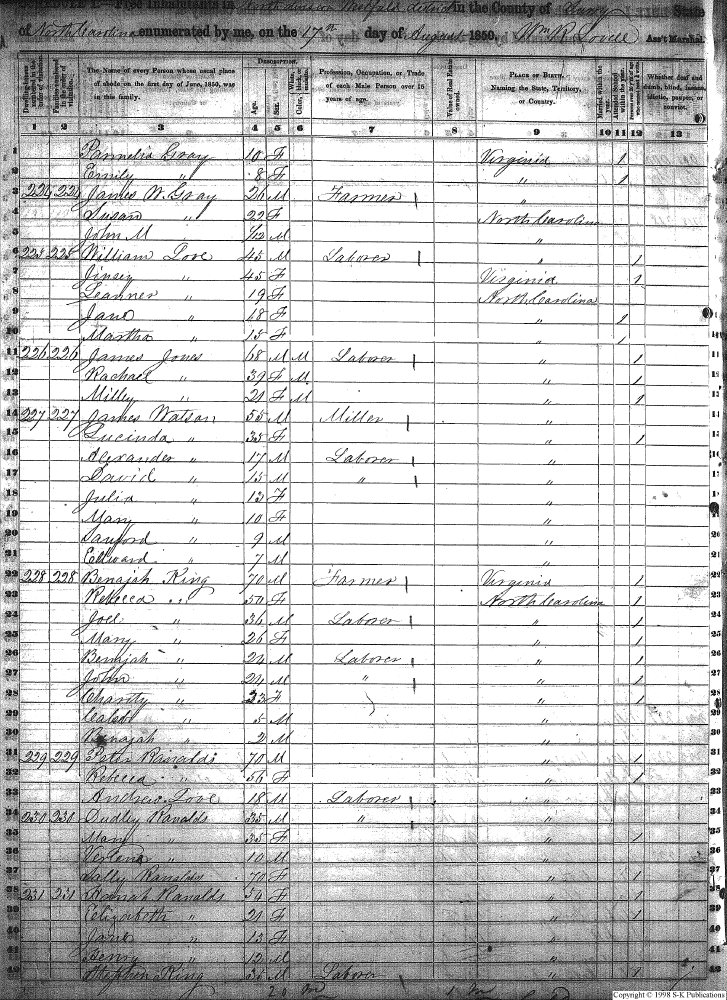 SCHEDULE I.—Free Inhabitants in District in the County of Surry State
of North Carolina enumerated by me, on the 17th day of August 1850. Wm R. Lovell Ass't Marshal.
DESCRIPTION.
The Name of every Person whose usual place of abode on the first day of June, 1850, was in this family.
Age. Sex.
Profession, Occupation, or Trade of each Male Person over 15 years of age.
Value of Real Estate owned.
PLACE OF BIRTH, Naming the State, Territory, or Country.
Whether deaf and dumb, blind, insane, idiotic, pauper, or convict.
1 2 3 4 5 6 7 8 9 10 11 12 13
1 Pammelia Gray 10 F Virginia 1
2 Emily " 8 F " 1
3 224 224 James W. Gray 26 M Farmer "
4 Susan " 22 F North Carolina
5 John M " M "
6 225 225 William Love 45 M Laborer " 1
7 Jinsey " 45 F Virginia 1
8 Leanner " 19 F North Carolina
9 Jane " 18 F " 1
10 Martha " 15 F " 1
11 226 226 James Jones 68 M M Laborer " 1
12 Rachael " 39 F M " 1
13 Milley " 21 F M " 1
14 227 227 James Watson 55 M Miller "
15 Lucinda " 35 F " 1
16 Alexander " 17 M Laborer "
17 David " 15 M " "
18 Julia " 13 F "
19 Mary " 10 F "
20 Sanford " 9 M "
21 Edward " 7 M "
22 228 228 Benajah King 70 M Farmer Virginia 1
23 Rebecca " 50 F North Carolina 1
24 Joel " 36 M Laborer " 1
25 Mary " 26 F " 1
26 Benajah " 24 M Laborer " 1
27 John " 24 M " " 1
28 Charity " 33 F " 1
29 Caleb " 5 M "
30 Benajah " 2 M "
31 229 229 Peter Ranalds 70 M " 1
32 Rebecca " 56 F " 1
33 Andrew Love 18 M Laborer "
34 230 230 Dudley Ranalds 35 M " "
35 Mary " 35 F " 1
36 " 10 M "
37 Sally Ranalds 70 F " 1
38 231 231 Hannah Ranalds 54 F " 1
39 Elizabeth " 21 F " 1
40 Jane " 13 F "
41 Henry " 12 M "
42 Stephen King 35 M Laborer " 1
Copyright © 1998 S-K Publications